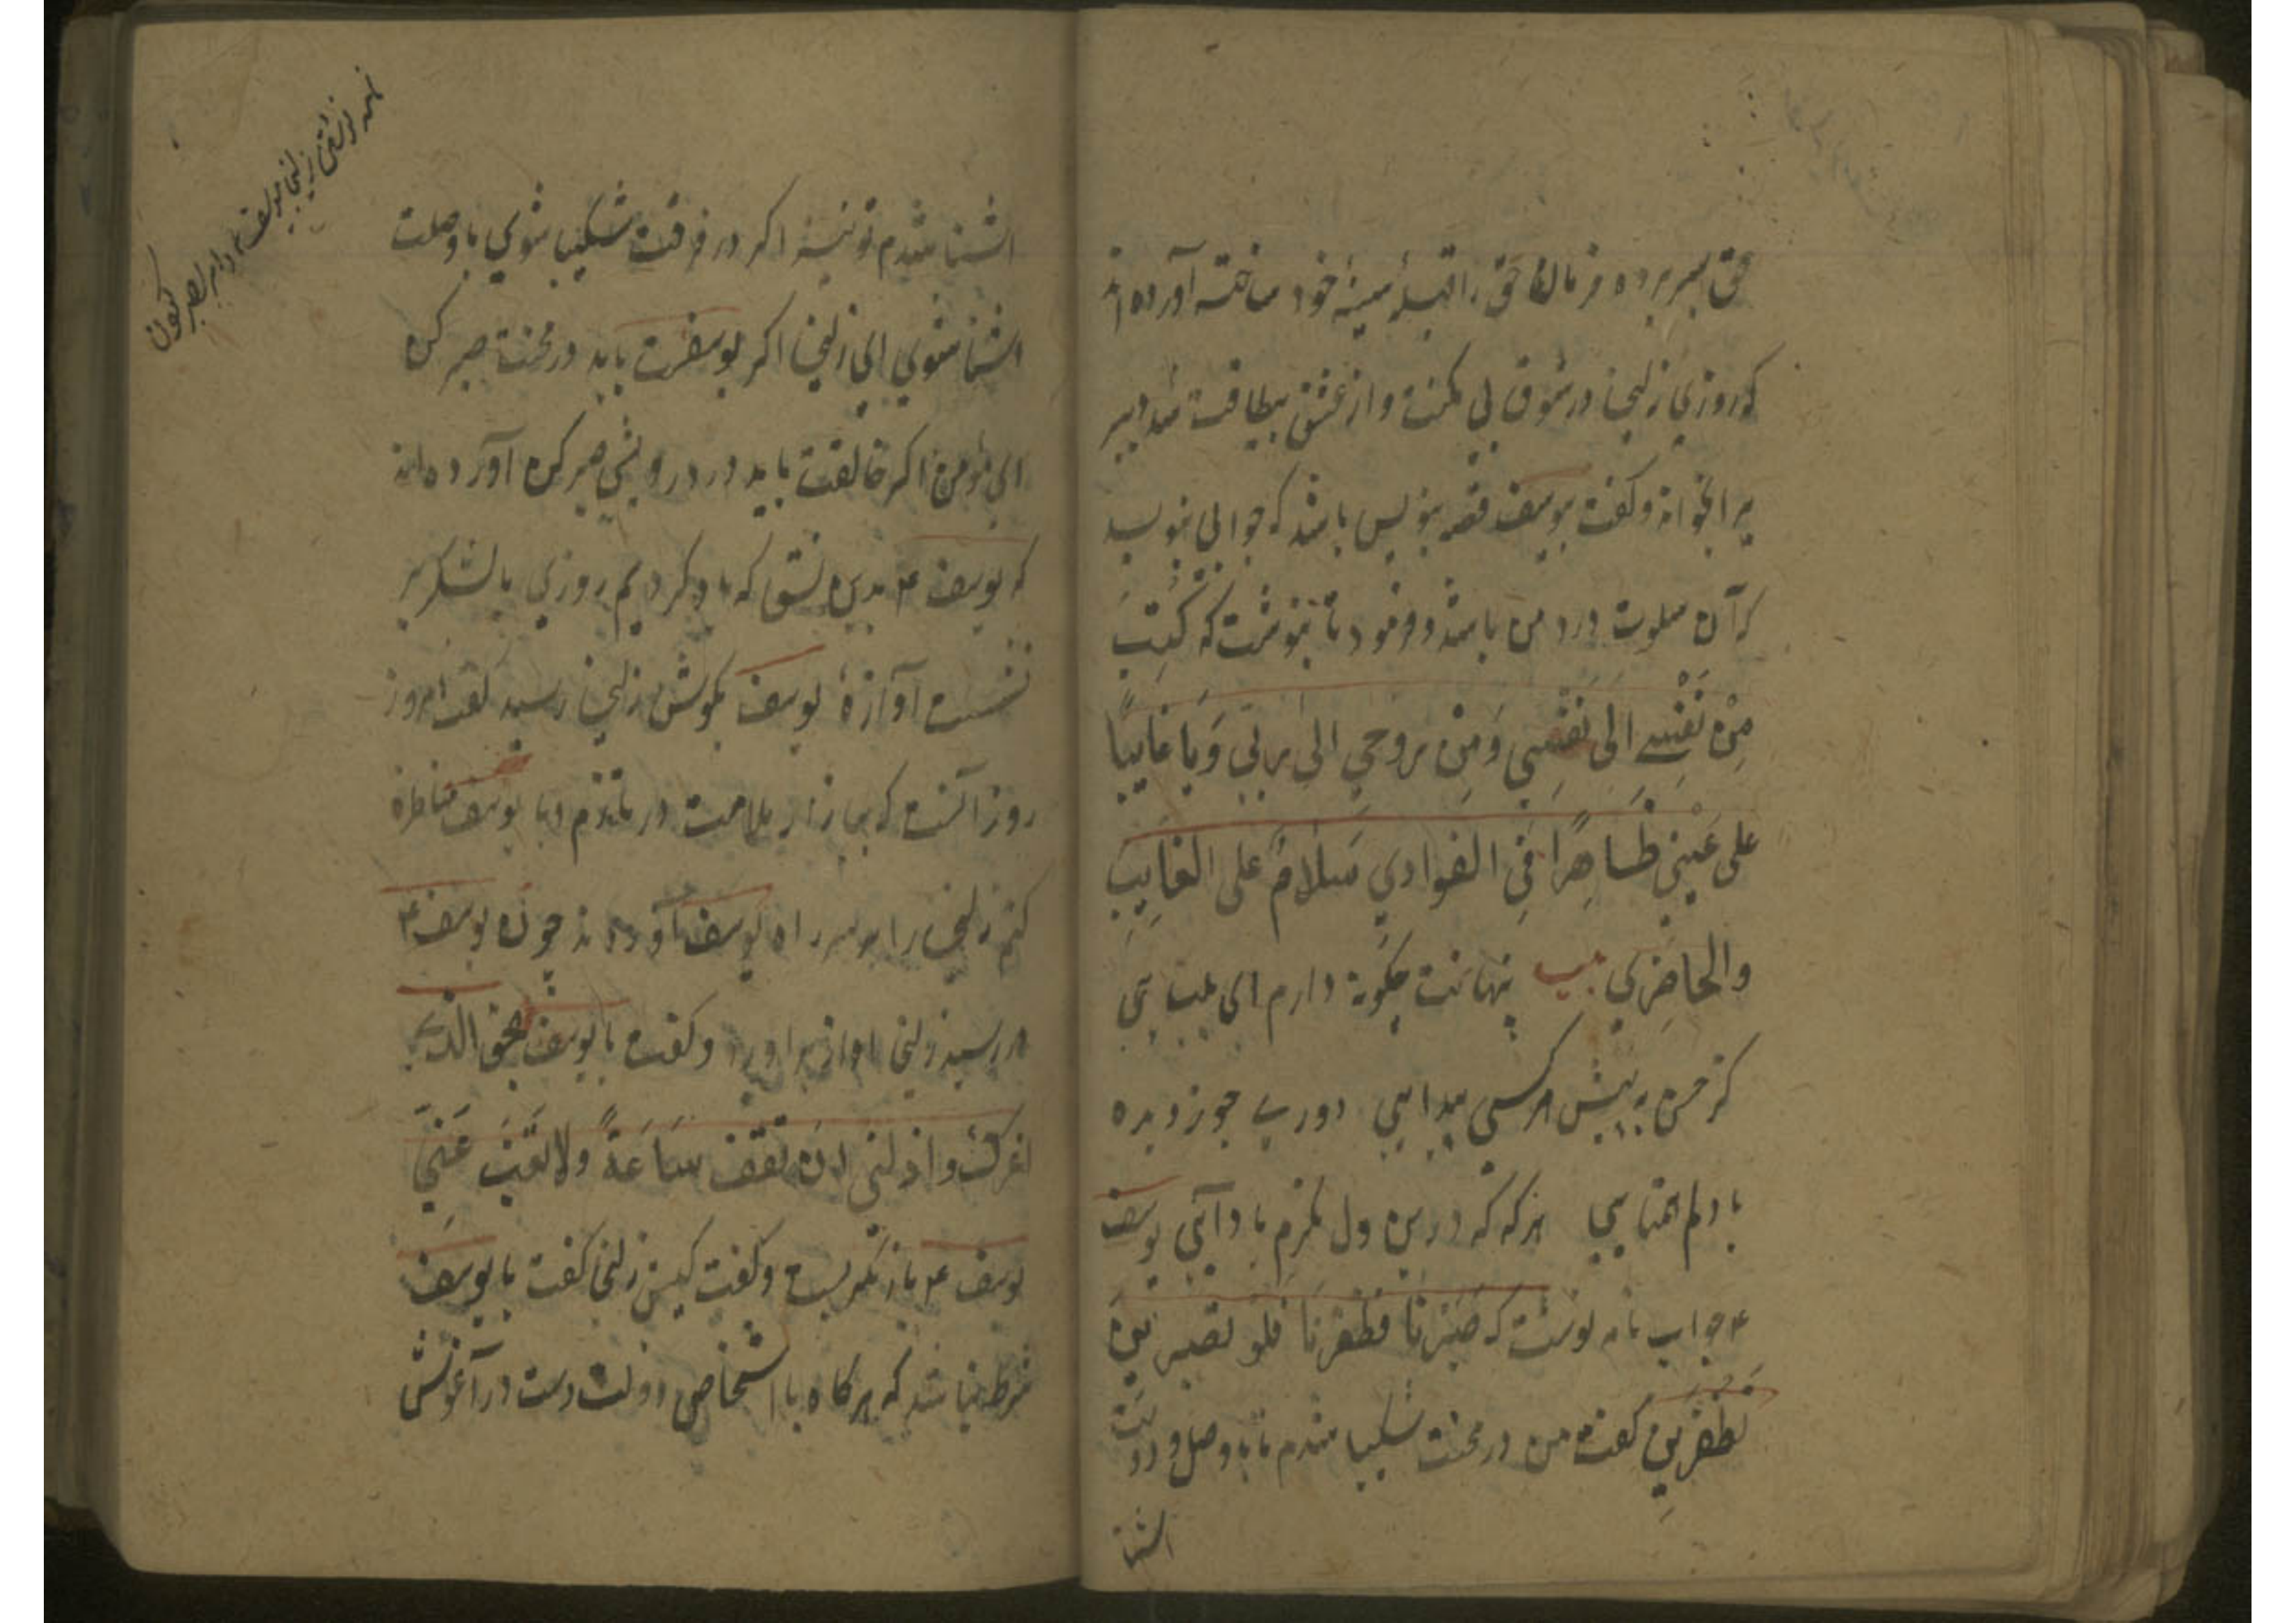 حق بسر برده و فرمان حق را قبلهٔ سینهٔ خود ساخته آورده اند
که روزی زلیخا در شوق بی مکنت و از عشق بیطاقت شد دبیر
را بخواند و گفت بیوسف قصه بنویس باشد که جوابی بنویسد
که آن سلوت درد من باشد و وفود تا بنوشت که کُتِبَ
مِنْ نَفْسِے اِلی نَفْسِی وَمِنْ رُوحِی اِلی رُوحی وَیا غایِبًا
علی عَیْنِی ظَاهِرًا فِی الفوادی سَلامٌ علی الغایِبِ
والحاضِرِی بیت پنهانت چگونه دارم ای بیتابی
کز حسن به پیش هر کسی پیدایی دوری چو ز دیده
با دلم همتایی هرگه که درین دل نگرم یاد آیی یوسف
ع جواب نامه نوشت که صَبَرْنا فَظَفَرْنَا فَلَو تصبرین
لظفرین گفت من در محنت شکیبا شدم تا به وصل و دولت
اشنا
اشنا شدم تو نیز اگر در فرقت شکیبا شوی با وصلت
اشنا شوی ای زلیخا اگر یوسفت باید در محنت صبر کن
ای مؤمن اگر خالقت باید در درویشی صبر کن آورده اند
که یوسف ع بدین نسق که یاد کردیم روزی با لشکر بر
نشست آوازهٔ یوسف بگوش زلیخا رسید گفت امروز
روز آنست که ببازار ملامت در تازم و با یوسف مناظره
کنم زلیخا را بر سر راه یوسف آوردند چون یوسف ع
در رسید زلیخا اواز براورد و گفت یا یوسف بحق الذی
اعزک و اذلنی ان تقف سَاعَةً ولا تَغِبْ عَنِّی
یوسف ع باز نگریست و گفت کیستی زلیخا گفت یا یوسف
شرط نباشد که هرگاه با اشخاص دولت دست در آغوش